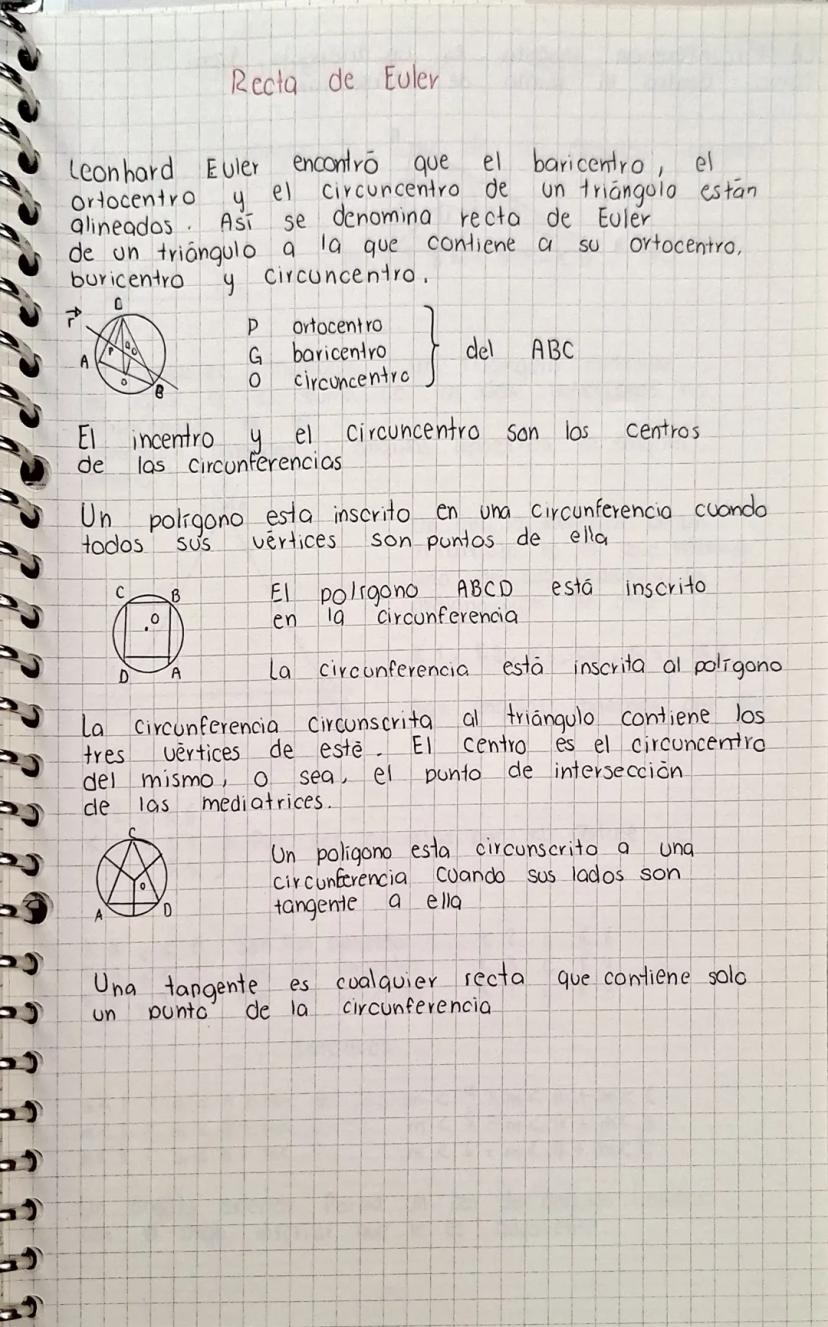 Recta de Euler
Leonhard Euler encontró que el baricentro, el
ortocentro y el circuncentro de un triángulo están
alineados. Así se denomina recta de Euler
de un triángulo a la que contiene a su ortocentro,
buricentro y circuncentro.
P ortocentro
G baricentro
O circuncentro
del ABC
El incentro y el circuncentro son los centros
de las circunferencias
Un polígono esta inscrito en una circunferencia cuando
todos sus vértices son puntos de ella
C B
O
D A
El polígono ABCD está inscrito
en la circunferencia
La circunferencia está inscrita al polígono
La circunferencia circunscrita al triángulo contiene los
tres vértices de esté. El centro es el circuncentro
del mismo, o sea, el punto de intersección
de las mediatrices.
C
O
A D
Un poligono esta circunscrito a una
circunferencia cuando sus lados son
tangente a ella
Una tangente es cualquier recta que contiene solo
un punto de la circunferencia